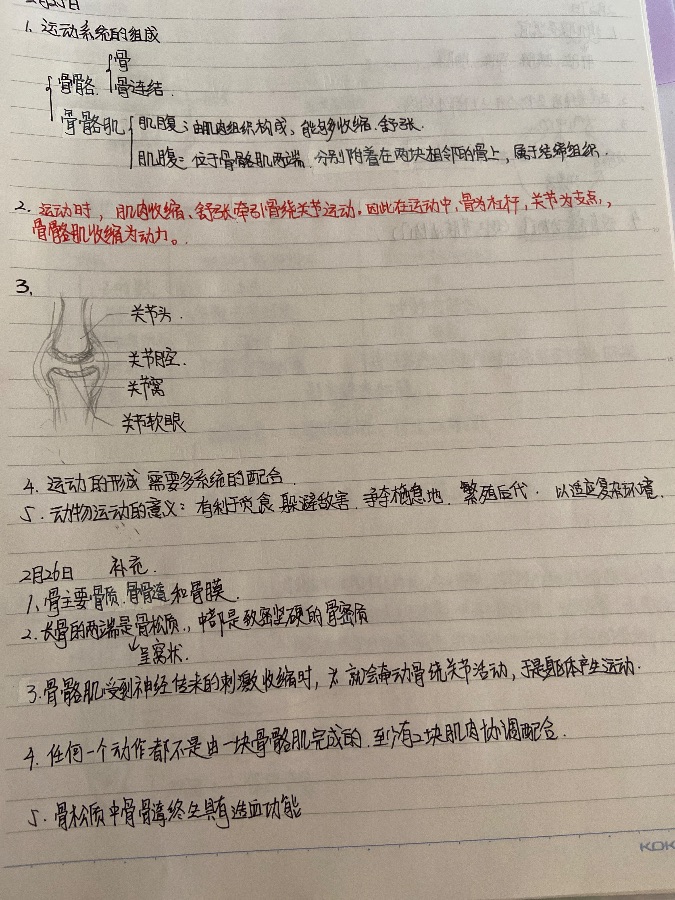 2月25日
1. 运动系统的组成
骨骼 骨
骨连结.
骨骼肌 肌腹:由肌肉组织构成,能够收缩.舒张.
肌腹:位于骨骼肌两端.分别附着在两块相邻的骨上,属于结缔组织.
2. 运动时,肌肉收缩、舒张牵引骨绕关节运动。因此在运动中,骨为杠杆,关节为支点,
骨骼肌收缩为动力。
3.
关节头.
关节腔.
关节窝
关节软眼
4. 运动的形成需要多系统的配合.
5. 动物运动的意义:有利于觅食 躲避敌害.争夺栖息地.繁殖后代.以适应复杂环境.
2月26日 补充.
1、骨主要骨质.骨骨遀和骨膜.
2. 长骨的两端是骨松质.,中部是致密坚硬的骨密质
呈窝状.
3. 骨骼肌受到神经传来的刺激收缩时,就会牵动骨绕关节活动,于是躯体产生运动.
4. 任何一个动作都不是由一块骨骼肌完成的.至少有2块肌肉协调配合.
5. 骨松质中骨骨遀终生具有造血功能
KOK